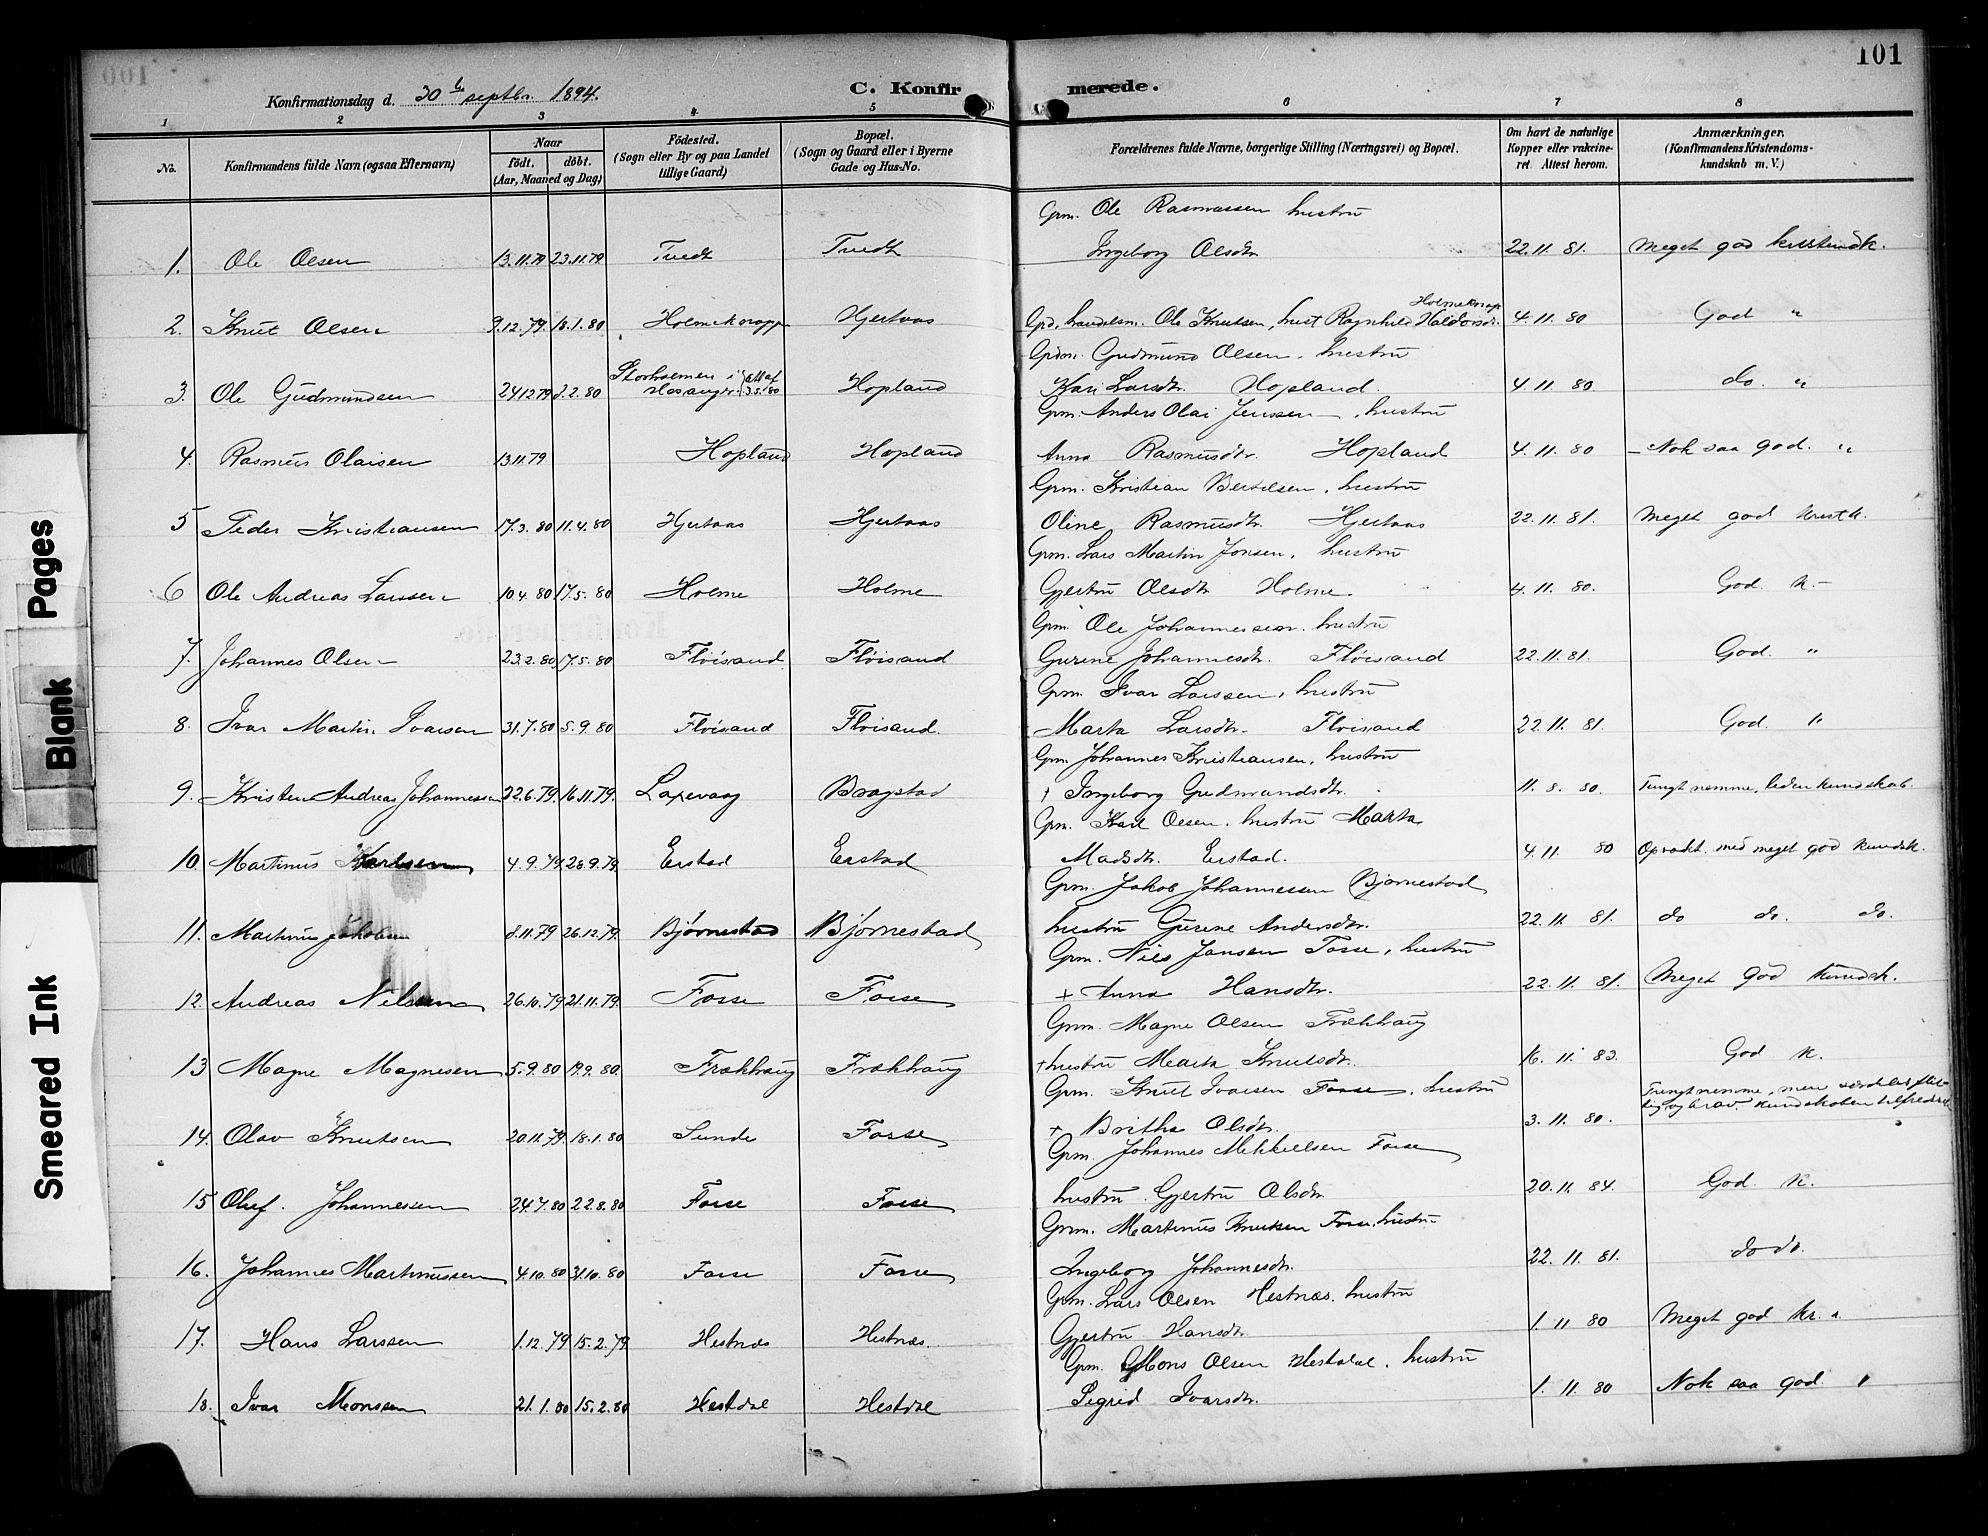 100
101
Konfirmationsdag d. 30te septbr. 1894.
C. Konfirmerede.
1 2 3 4 5 6 7 8
No.
Konfirmandens fulde Navn (ogsaa Efternavn)
Naar
født. døbt.
(Aar, Maaned og Dag)
Fødested.
(Sogn eller By og paa Landet
tillige Gaard)
Bopæl.
(Sogn og Gaard eller i Byerne
Gade og Hus-No.
Forældrenes fulde Navne, borgerlige Stilling (Næringsvei) og Bopæl.
Om havt de naturlige
Kopper eller vakcine-
ret. Attest herom.
Anmærkninger.
(Konfirmandens Kristendoms-
kundskab m. V.)
Grm. Ole Rasmussen hustru
1. Ole Olsen 13.11.79 23.11.79 Tvedt Tvedt Ingeborg Olsdtr 22.11.81. Meget god kristendk.
Holmeknapp
2. Knut Olsen 9.12.79. 18.1.80 Holmeknapp Hjertaas Gpd, handelsm. Ole Knutsen, hust Ragnhild Haldorsdr. 4.11.80 God "
Grdm. Gudmund Olsen, hustru
3. Ole Gudmundsen 24.12.79 8.2.80 Storholmen i Hosanger att af 3.5.80 Hopland Kari Larsdtr. Hopland. 4.11.80. do. "
Grm. Anders Olai Jenssen, hustru
4. Rasmus Olaisen 13.11.79 Hopland Hopland Anna Rasmusdtr. Hopland 4.11.80 – Nok saa god. "
Grm. Kristian Bertelsen, hustru
5 Peder Kristiansen 17.3.80 11.4.80 Hjertaas Hjertaas Oline Rasmusdtr. Hjertaas 22.11.81. Meget god kristk.
Grm. Lars Martin Jonsen, hustru
6 Ole Andreas Larssen 10.4.80 17.5.80 Holme Holme Gjertru Olsdtr Holme. 4.11.80. God. K.-
Grm. Ole Johannessen, hustru
7. Johannes Olsen 23.2.80 17.5.80 Fløisand Fløisand Gurine Johannesdtr. Fløisand 22.11.81. God. "
Grm. Ivar Larssen, hustru
8. Ivar Martin Ivarsen 31.7.80 5.9.80 Fløisand Fløisand. Marta Larsdtr. Fløisand 22.11.81. God. "
Grm. Johannes Kristiansen, hustru
9. Kristen Andreas Johannessen 22.6.79. 16.11.79. Laxevaag Bragstad † Ingeborg Gudmundsdtr. 11.8.80. Tungt nemme, liden kundskab.
Grm. Karl Olsen, hustru Marta
10. Martinus Karlsen 4.9.79. 28.9.79. Eistad Eistad Madsdtr. Eistad. 4.11 80 Opvakt med meget god kundsk.
Grm. Jakob Johannessen Bjørnestad
11. Martinus Jakobsen 8.11.79 26.12.79. Bjørnestad Bjørnestad hustru Gurine Andersdtr. 22.11.81. do do. do.
Grm. Nils Jansen Fosse, hustru
12. Andreas Nilssen 26.10.79 21.11.79. Fosse Fosse + Anna Hansdtr. 22.11.81. Meget god kundsk.
Grm. Magne Olsen Frækhaug
13 Magne Magnesen 5.9.80 19.9.80. Frækhaug Frækhaug †hustru Marta Knutsdtr. 16.11.83. God K.
Grm. Knut Ivarsen Fosse, hustru
14. Olav Knutsen 20.11.79. 18.1.80 Sunde Fosse + Britha Olsdtr. 3.11.80. Tungt nemme, men særdeles flit-
tig og brav. Kundskaben tilfredsst.
Grm. Johannes Mikkelsen Fosse
15 Oluf. Johannessen 24.7.80 22.8.80 Fosse Fosse hustru Gjertru Olsdtr 20.11.84. God K.
Grm. Martinus Knutsen Fosse, hustru
16. Johannes Martinussen 4.10.80 31.10.80 Fosse Fosse Ingeborg Johannesdtr. 22.11.81. do do.
Grm. Lars Olsen Hestnæs, hustru
17. Hans Larssen 1.12.79 15.2.79. Hestnæs Hestnæs. Gjertru Hansdtr. 1.11 80 Meget god kr. "
Grm. Mons Olsen Hestdal, hustru
18. Ivar Monssen 21.1.80 15.2.80 Hestdal Hestdal Sigrid Ivarsdtr. 1.11.80 Nok saa god "
Blank Pages
Smeared Ink